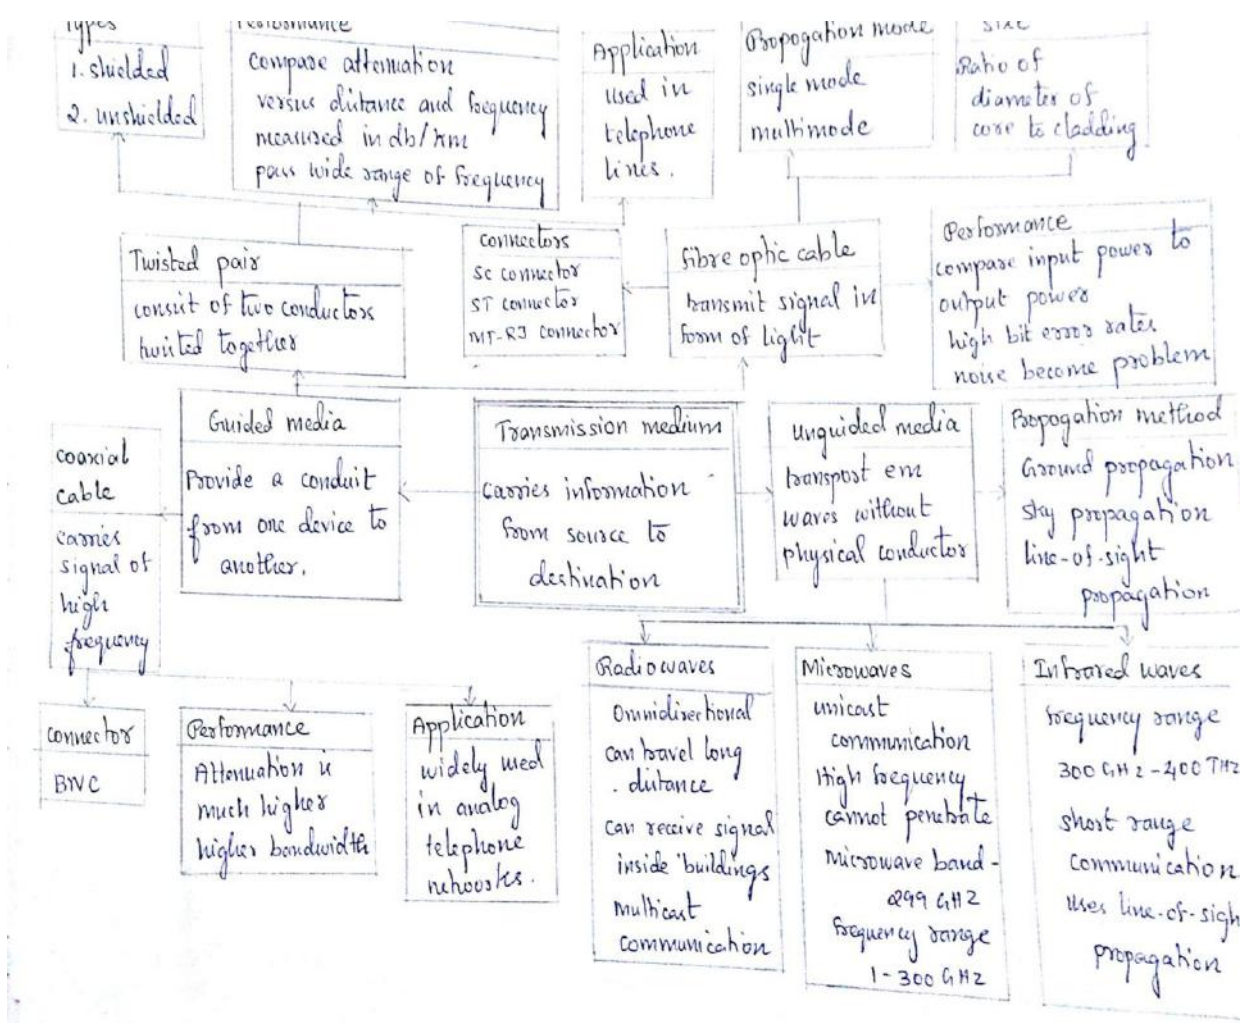 Types
1. shielded
2. unshielded
Performance
compare attenuation
versus distance and frequency
measured in db/km
pass wide range of frequency
Application
used in
telephone
lines.
Propogation mode
single mode
multimode
size
Ratio of
diameter of
core to cladding
Twisted pair
consist of two conductors
twisted together
connectors
SC connector
ST connector
MT-RJ connector
fibre optic cable
transmit signal in
form of light
Performance
compare input power to
output power
high bit error rates
noise become problem
coaxial
cable
carries
signal of
high
frequency
Guided media
Provide a conduit
from one device to
another.
Transmission medium
carries information
from source to
destination
Unguided media
transport em
waves without
physical conductor
Propogation method
Ground propagation
sky propagation
line-of-sight
propagation
connector
BNC
Performance
Attenuation is
much higher
higher bandwidth
Application
widely used
in analog
telephone
networks.
Radiowaves
Omnidirectional
can travel long
distance
can receive signal
inside buildings
multicast
communication
Microwaves
unicast
communication
High frequency
cannot penetrate
microwave band -
299 GHZ
frequency range
1-300 GHZ
Infrared waves
frequency range
300 GHZ-400 THZ
short range
communication
uses line-of-sigh
propagation